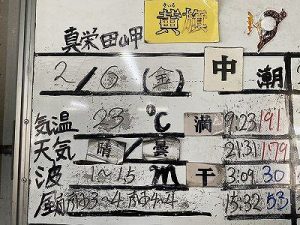 きいろ
黄旗
真栄田岬
2/ (金) 中潮
気温 23 ℃ 満 9:23 191
天気 晴/曇 21:31 179
波 1~1.5 m 干 3:09 30
風 3~4 3~4 15:32 53